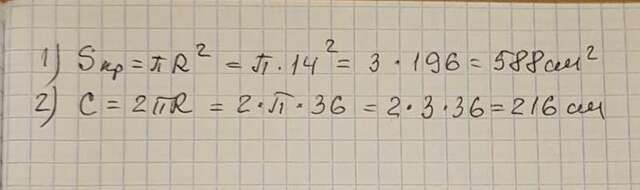 1) Sкр = πR² = π · 14² = 3 · 196 = 588 см²
2) C = 2πR = 2 · π · 36 = 2 · 3 · 36 = 216 см